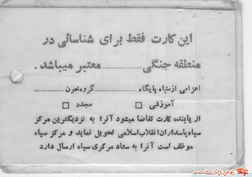 این کارت فقط برای شناسائی در
منطقه جنگی .......... معتبر میباشد .
اعزامی از ستاد پایگاه .......... گروه خون ..........
آموزشی □ مجدد □
از یابنده کارت تقاضا میشود آنرا به نزدیکترین مرکز
سپاه پاسداران انقلاب اسلامی تحویل نماید و مرکز سپاه
موظف است آنرا به ستاد مرکزی سپاه ارسال دارد